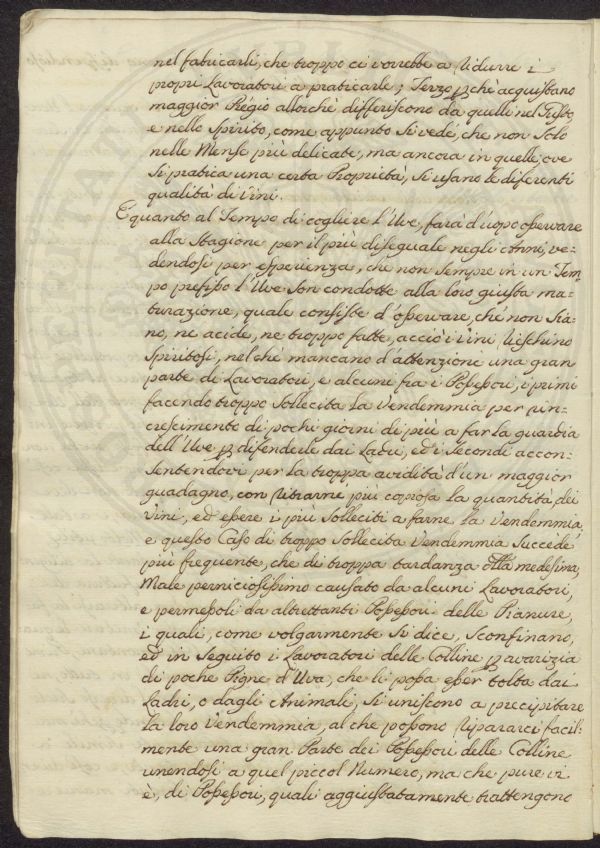 nel fabricarli, che troppo ci vorrebbe a ridurre i
propri Lavoratori a praticarle; Terzo pchè acquistano
maggior Pregio allorchè differiscono da quelli nel Gusto,
e nello Spirito, come appunto si vede, che non solo
nelle Mense più delicate, ma ancora in quelle, ove
si pratica una certa Proprietà, si usano le diferenti
qualità di vini.
E quanto al Tempo di cogliere l'Uve, farà d'uopo osservare
alla Stagione per il più diseguale negli Anni, ve=
dendosi per esperienza, che non sempre in un Tem=
po prefisso l'Uve son condotte alla loro giusta ma=
turazione, quale consiste d'osservare, che non sia=
no, ne acide, ne troppo fatte, acciò i vini rieschino
spiritosi, nel chè mancano d'attenzione una gran
parte di Lavoratori, e alcuni fra i Possessori, i primi
facendo troppo sollecita la Vendemmia per rin=
crescimento di pochi giorni di più a far la guardia
dell'Uve p difenderle dai Ladri, ed i secondi accon=
sentendovi per la troppa avidità d'un maggior
guadagno, con ritrarne più copiosa la quantità, dei
vini, ed essere i più solleciti a farne la Vendemmia,
e questo Caso di troppo sollecita Vendemmia succede
più frequente, che di troppa tardanza alla medesima;
Male perniciosissimo causato da alcuni Lavoratori,
e permessoli da altrettanti Possessori delle Pianure,
i quali, come volgarmente si dice, sconfinano,
ed in seguito i Lavoratori delle Colline p avarizia
di poche Pigne d'Uva, che li possa esser tolta dai
Ladri, o dagli Animali, si uniscono a precipitare
la loro Vendemmia, al che possono ripararci facil=
mente una gran Parte dei Possessori delle Colline
unendosi a quel piccol Numero, ma che pure vi
è, di Possessori, quali aggiustatamente trattengono